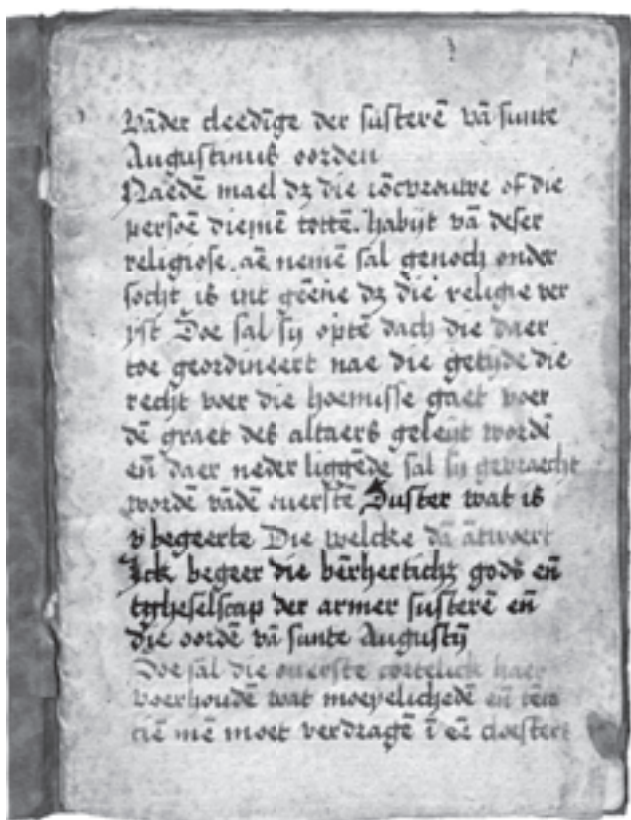 Vāder cleedīge der susterē vā sunte
Augustinus oorden
Naedē mael dz die iōcvrouwe of die
persoē diemē tottē habijt vā deser
religiose aē nemē sal genoch onder
socht is int gēene dz die religie ver
Doe sal sy optē dach die daer
toe geordineert nae die getijde die
recht voer die hoemisse gaet voer
dē graet des altaers geleyt wordē
eñ daer neder liggēde sal sy gevraecht
wordē vādē ouerstē Suster wat is
v begeerte Die welcke dā ātwoert
Ick begeer die bērherticht gods eñ
tgheselscap der armer susterē eñ
die oordē vā sunte Augustÿ
Doe sal die ouerste cortelick haer
voerhoudē wat moeyelichedē eñ
mē moet verdragē ī eē cloester